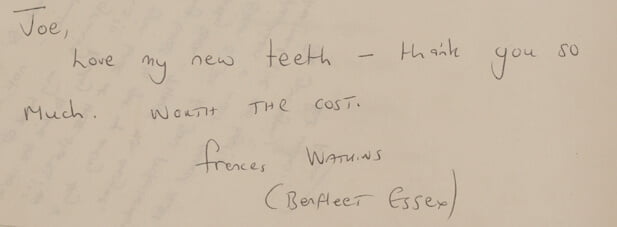 Joe,
Love my new teeth – thank you so
much. WORTH THE COST.
Frances WATKINS
(Benfleet Essex)